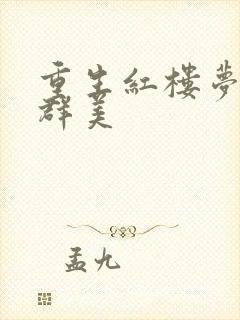 重生紅樓夢
群美
孟九